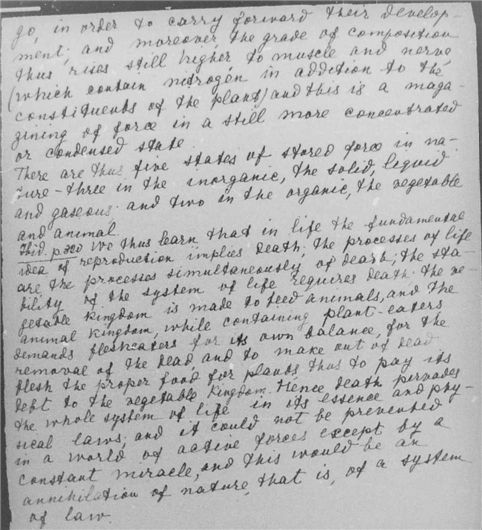 go, in order to carry forward their develop-
ment; and moreover, the grade of composition
thus rises still higher to muscle and nerve
(which contain nitrogen in addition to the
constituents of the plant) and this is a maga-
gining of force in a still more concentrated
or condensed state.
There are thus five states of stored force in na-
ture - three in the inorganic, the solid, liquid
and gaseous and two in the organic, the vegetable
and animal.
Ibid. We thus learn that in life the fundamental
idea of reproduction implies death; the processes of life
are the processes simultaneously of death; the sta-
bility of the system of life requires death. The ve-
getable kingdom is made to feed animals, and the
animal kingdom, while containing plant-eaters
demands flesheaters for its own balance, for the
removal of the dead, and to make out of dead
flesh the proper food for plants thus to pay its
debt to the vegetable kingdom. Hence death pervades
the whole system of life in its essence and phy-
sical laws, and it could not be prevented
in a world of active forces except by a
constant miracle, and this would be an
annihilation of nature, that is, of a system
of law.